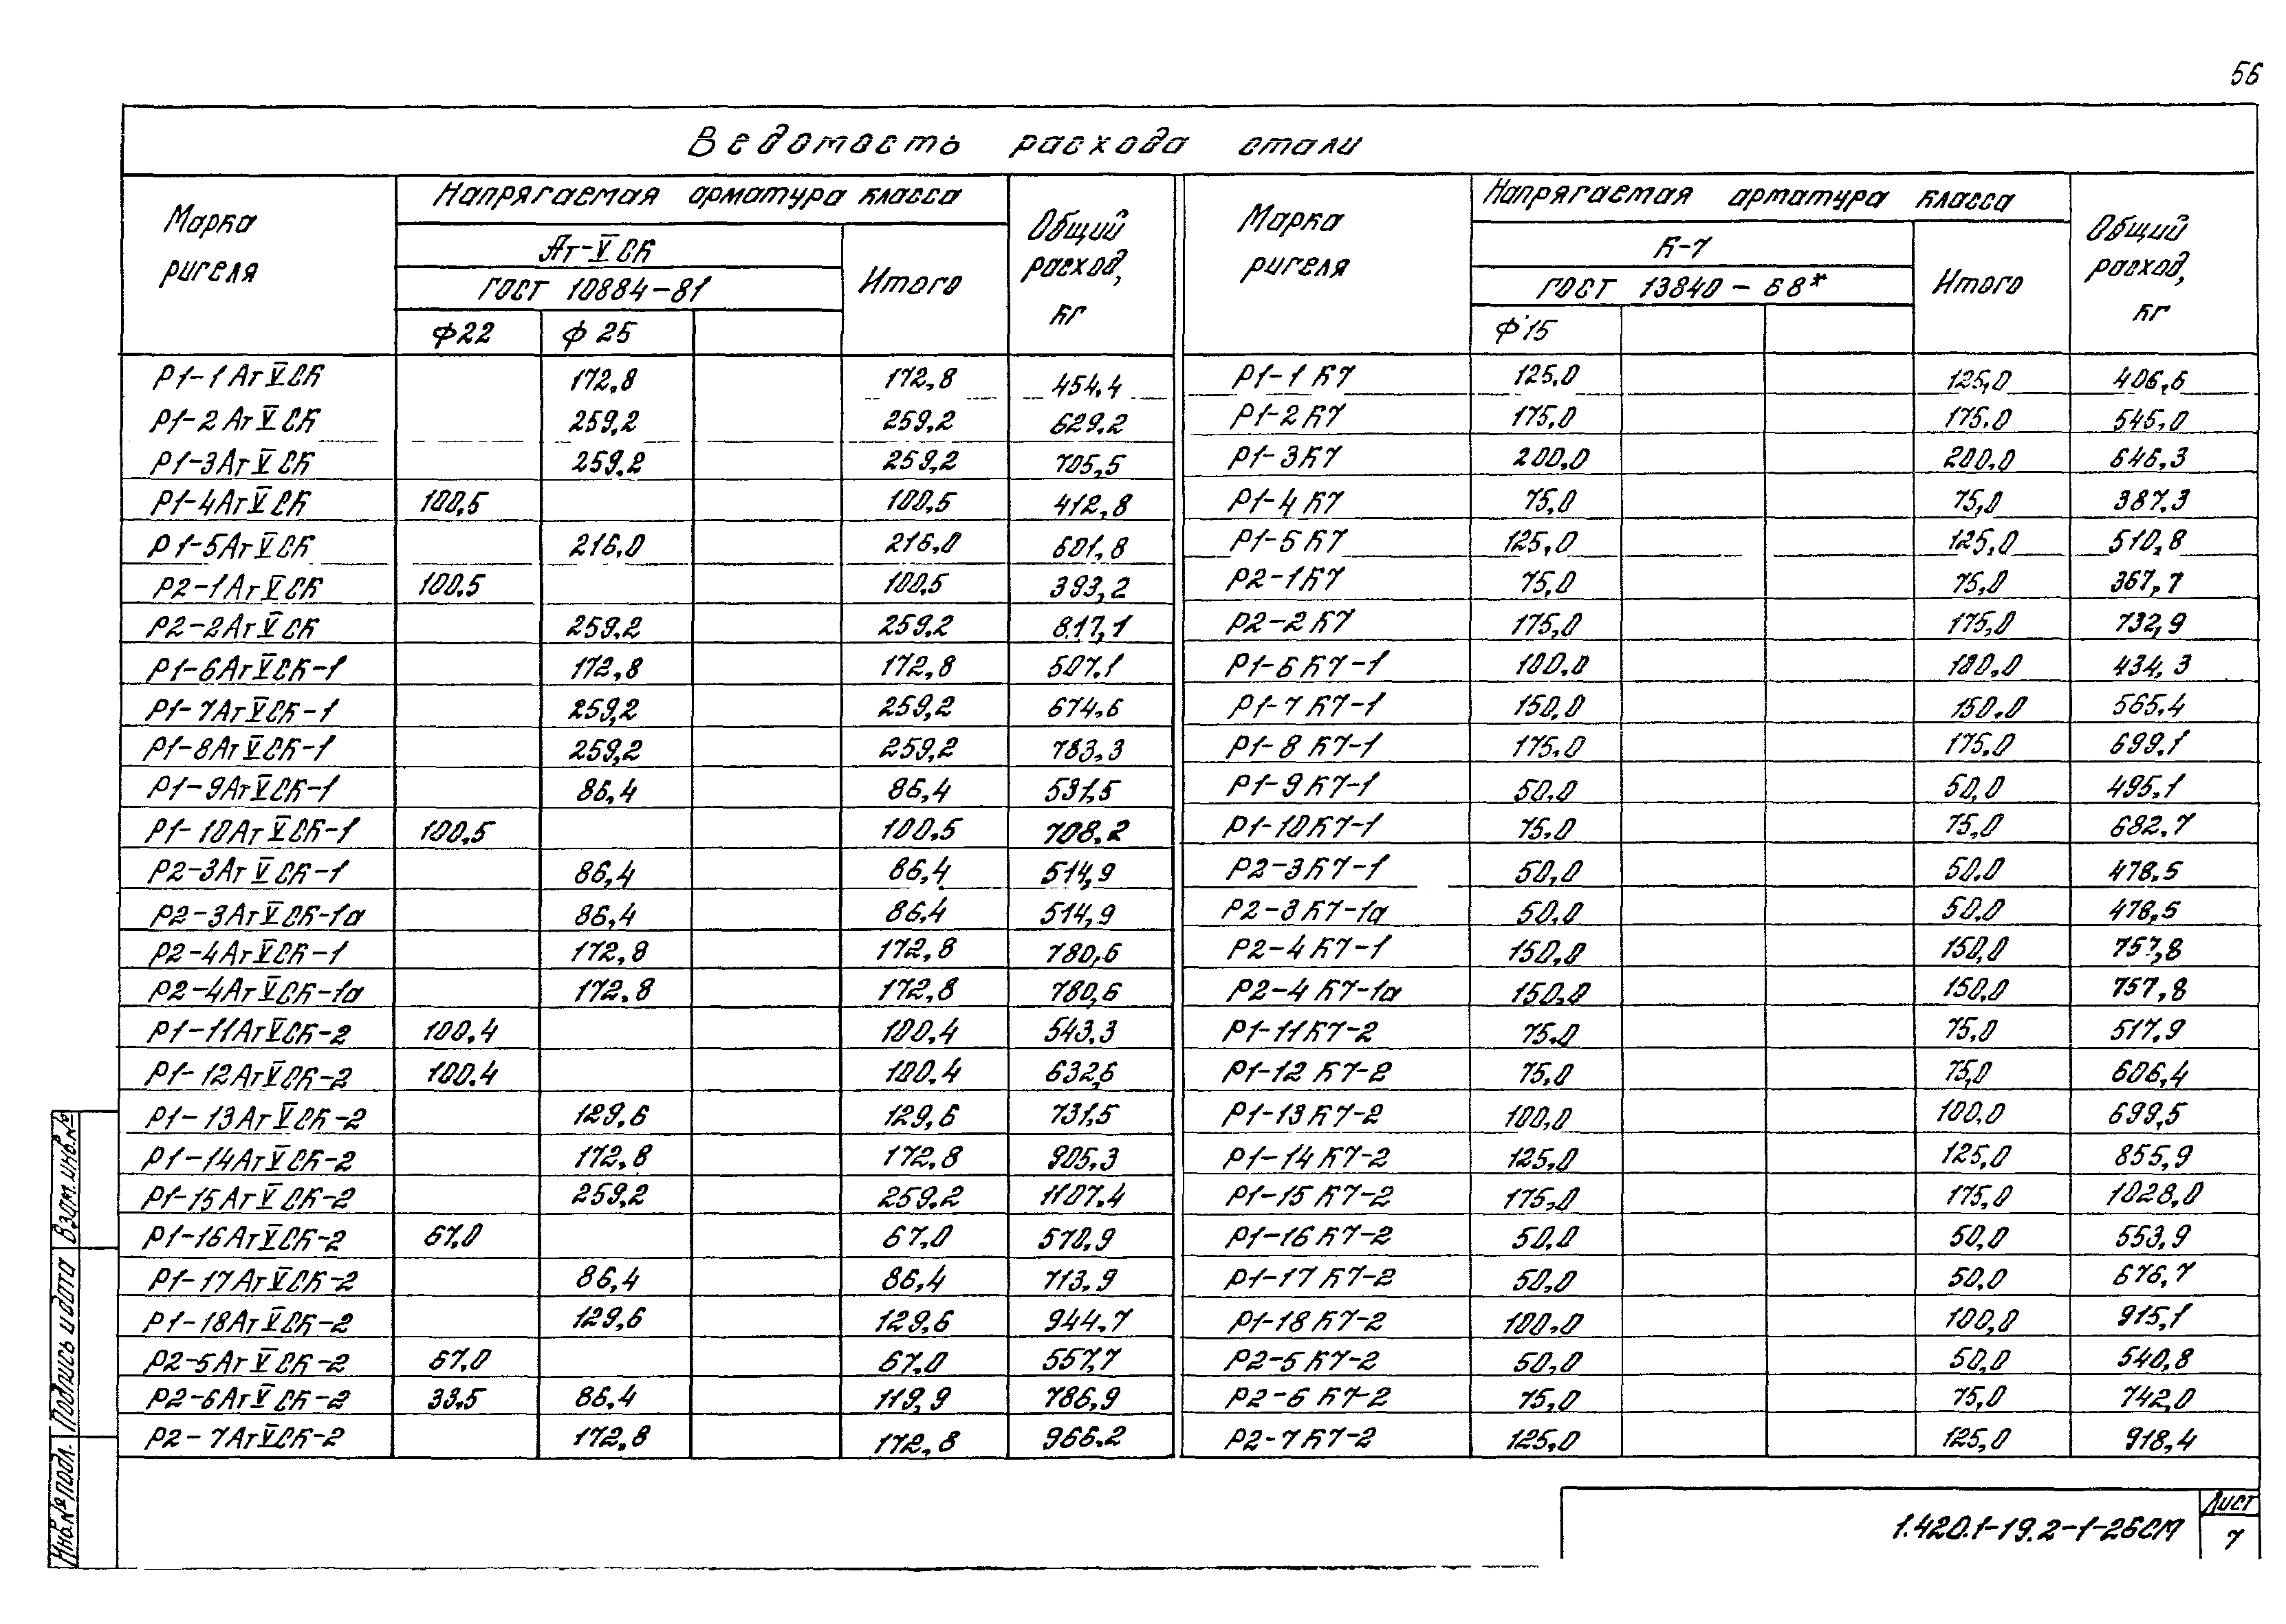 56
Ведомость расхода стали
Марка ригеля | Напрягаемая арматура класса | Общий расход, кг | Марка ригеля | Напрягаемая арматура класса | Общий расход, кг
Ат-V СК | Итого | К-7 | Итого
ГОСТ 10884-81 | ГОСТ 13840-68*
Ф22 | Ф 25 | Ф15
Р1-1 Ат V СК | 172,8 | 172,8 | 454,4 | Р1-1 К7 | 125,0 | 125,0 | 406,6
Р1-2 Ат V СК | 259,2 | 259,2 | 629,2 | Р1-2 К7 | 175,0 | 175,0 | 545,0
Р1-3Ат V СК | 259,2 | 259,2 | 705,5 | Р1-3К7 | 200,0 | 200,0 | 646,3
Р1-4Ат V СК | 100,5 | 100,5 | 412,8 | Р1-4 К7 | 75,0 | 75,0 | 387,3
Р1-5Ат V СК | 216,0 | 216,0 | 601,8 | Р1-5 К7 | 125,0 | 125,0 | 510,8
Р2-1Ат V СК | 100,5 | 100,5 | 393,2 | Р2-1К7 | 75,0 | 75,0 | 367,7
Р2-2Ат V СК | 259,2 | 259,2 | 817,1 | Р2-2 К7 | 175,0 | 175,0 | 732,9
Р1-6Ат V СК-1 | 172,8 | 172,8 | 507,1 | Р1-6 К7-1 | 100,0 | 100,0 | 434,3
Р1-7Ат V СК-1 | 259,2 | 259,2 | 674,6 | Р1-7 К7-1 | 150,0 | 150,0 | 565,4
Р1-8Ат V СК-1 | 259,2 | 259,2 | 783,3 | Р1-8 К7-1 | 175,0 | 175,0 | 699,1
Р1-9Ат V СК-1 | 86,4 | 86,4 | 531,5 | Р1-9 К7-1 | 50,0 | 50,0 | 495,1
Р1-10Ат V СК-1 | 100,5 | 100,5 | 708,2 | Р1-10К7-1 | 75,0 | 75,0 | 682,7
Р2-3Ат V СК-1 | 86,4 | 86,4 | 514,9 | Р2-3К7-1 | 50,0 | 50,0 | 478,5
Р2-3Ат V СК-1а | 86,4 | 86,4 | 514,9 | Р2-3 К7-1а | 50,0 | 50,0 | 478,5
Р2-4Ат V СК-1 | 172,8 | 172,8 | 780,6 | Р2-4 К7-1 | 150,0 | 150,0 | 757,8
Р2-4Ат V СК-1а | 172,8 | 172,8 | 780,6 | Р2-4 К7-1а | 150,0 | 150,0 | 757,8
Р1-11Ат V СК-2 | 100,4 | 100,4 | 543,3 | Р1-11К7-2 | 75,0 | 75,0 | 517,9
Р1-12Ат V СК-2 | 100,4 | 100,4 | 632,6 | Р1-12 К7-2 | 75,0 | 75,0 | 606,4
Р1-13Ат V СК-2 | 129,6 | 129,6 | 731,5 | Р1-13К7-2 | 100,0 | 100,0 | 699,5
Р1-14Ат V СК-2 | 172,8 | 172,8 | 905,3 | Р1-14 К7-2 | 125,0 | 125,0 | 855,9
Р1-15Ат V СК-2 | 259,2 | 259,2 | 1107,4 | Р1-15 К7-2 | 175,0 | 175,0 | 1028,0
Р1-16Ат V СК-2 | 67,0 | 67,0 | 570,9 | Р1-16 К7-2 | 50,0 | 50,0 | 553,9
Р1-17Ат V СК-2 | 86,4 | 86,4 | 713,9 | Р1-17 К7-2 | 50,0 | 50,0 | 676,7
Р1-18Ат V СК-2 | 129,6 | 129,6 | 944,7 | Р1-18 К7-2 | 100,0 | 100,0 | 915,1
Р2-5Ат V СК-2 | 67,0 | 67,0 | 557,7 | Р2-5 К7-2 | 50,0 | 50,0 | 540,8
Р2-6Ат V СК-2 | 33,5 | 86,4 | 119,9 | 786,9 | Р2-6 К7-2 | 75,0 | 75,0 | 742,0
Р2-7Ат V СК-2 | 172,8 | 172,8 | 966,2 | Р2-7 К7-2 | 125,0 | 125,0 | 918,4
Взам. инв. №
Подпись и дата
Инв. № подл.
1.420.1-19.2-1-26СМ
Лист
7